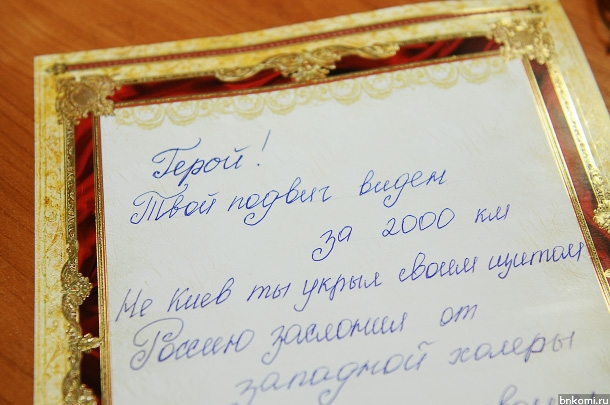 Герой!
Твой подвиг виден
за 2000 км
Не Киев ты укрыл своим щитом
Россию заслонил от
западной холеры
bnkomi.ru